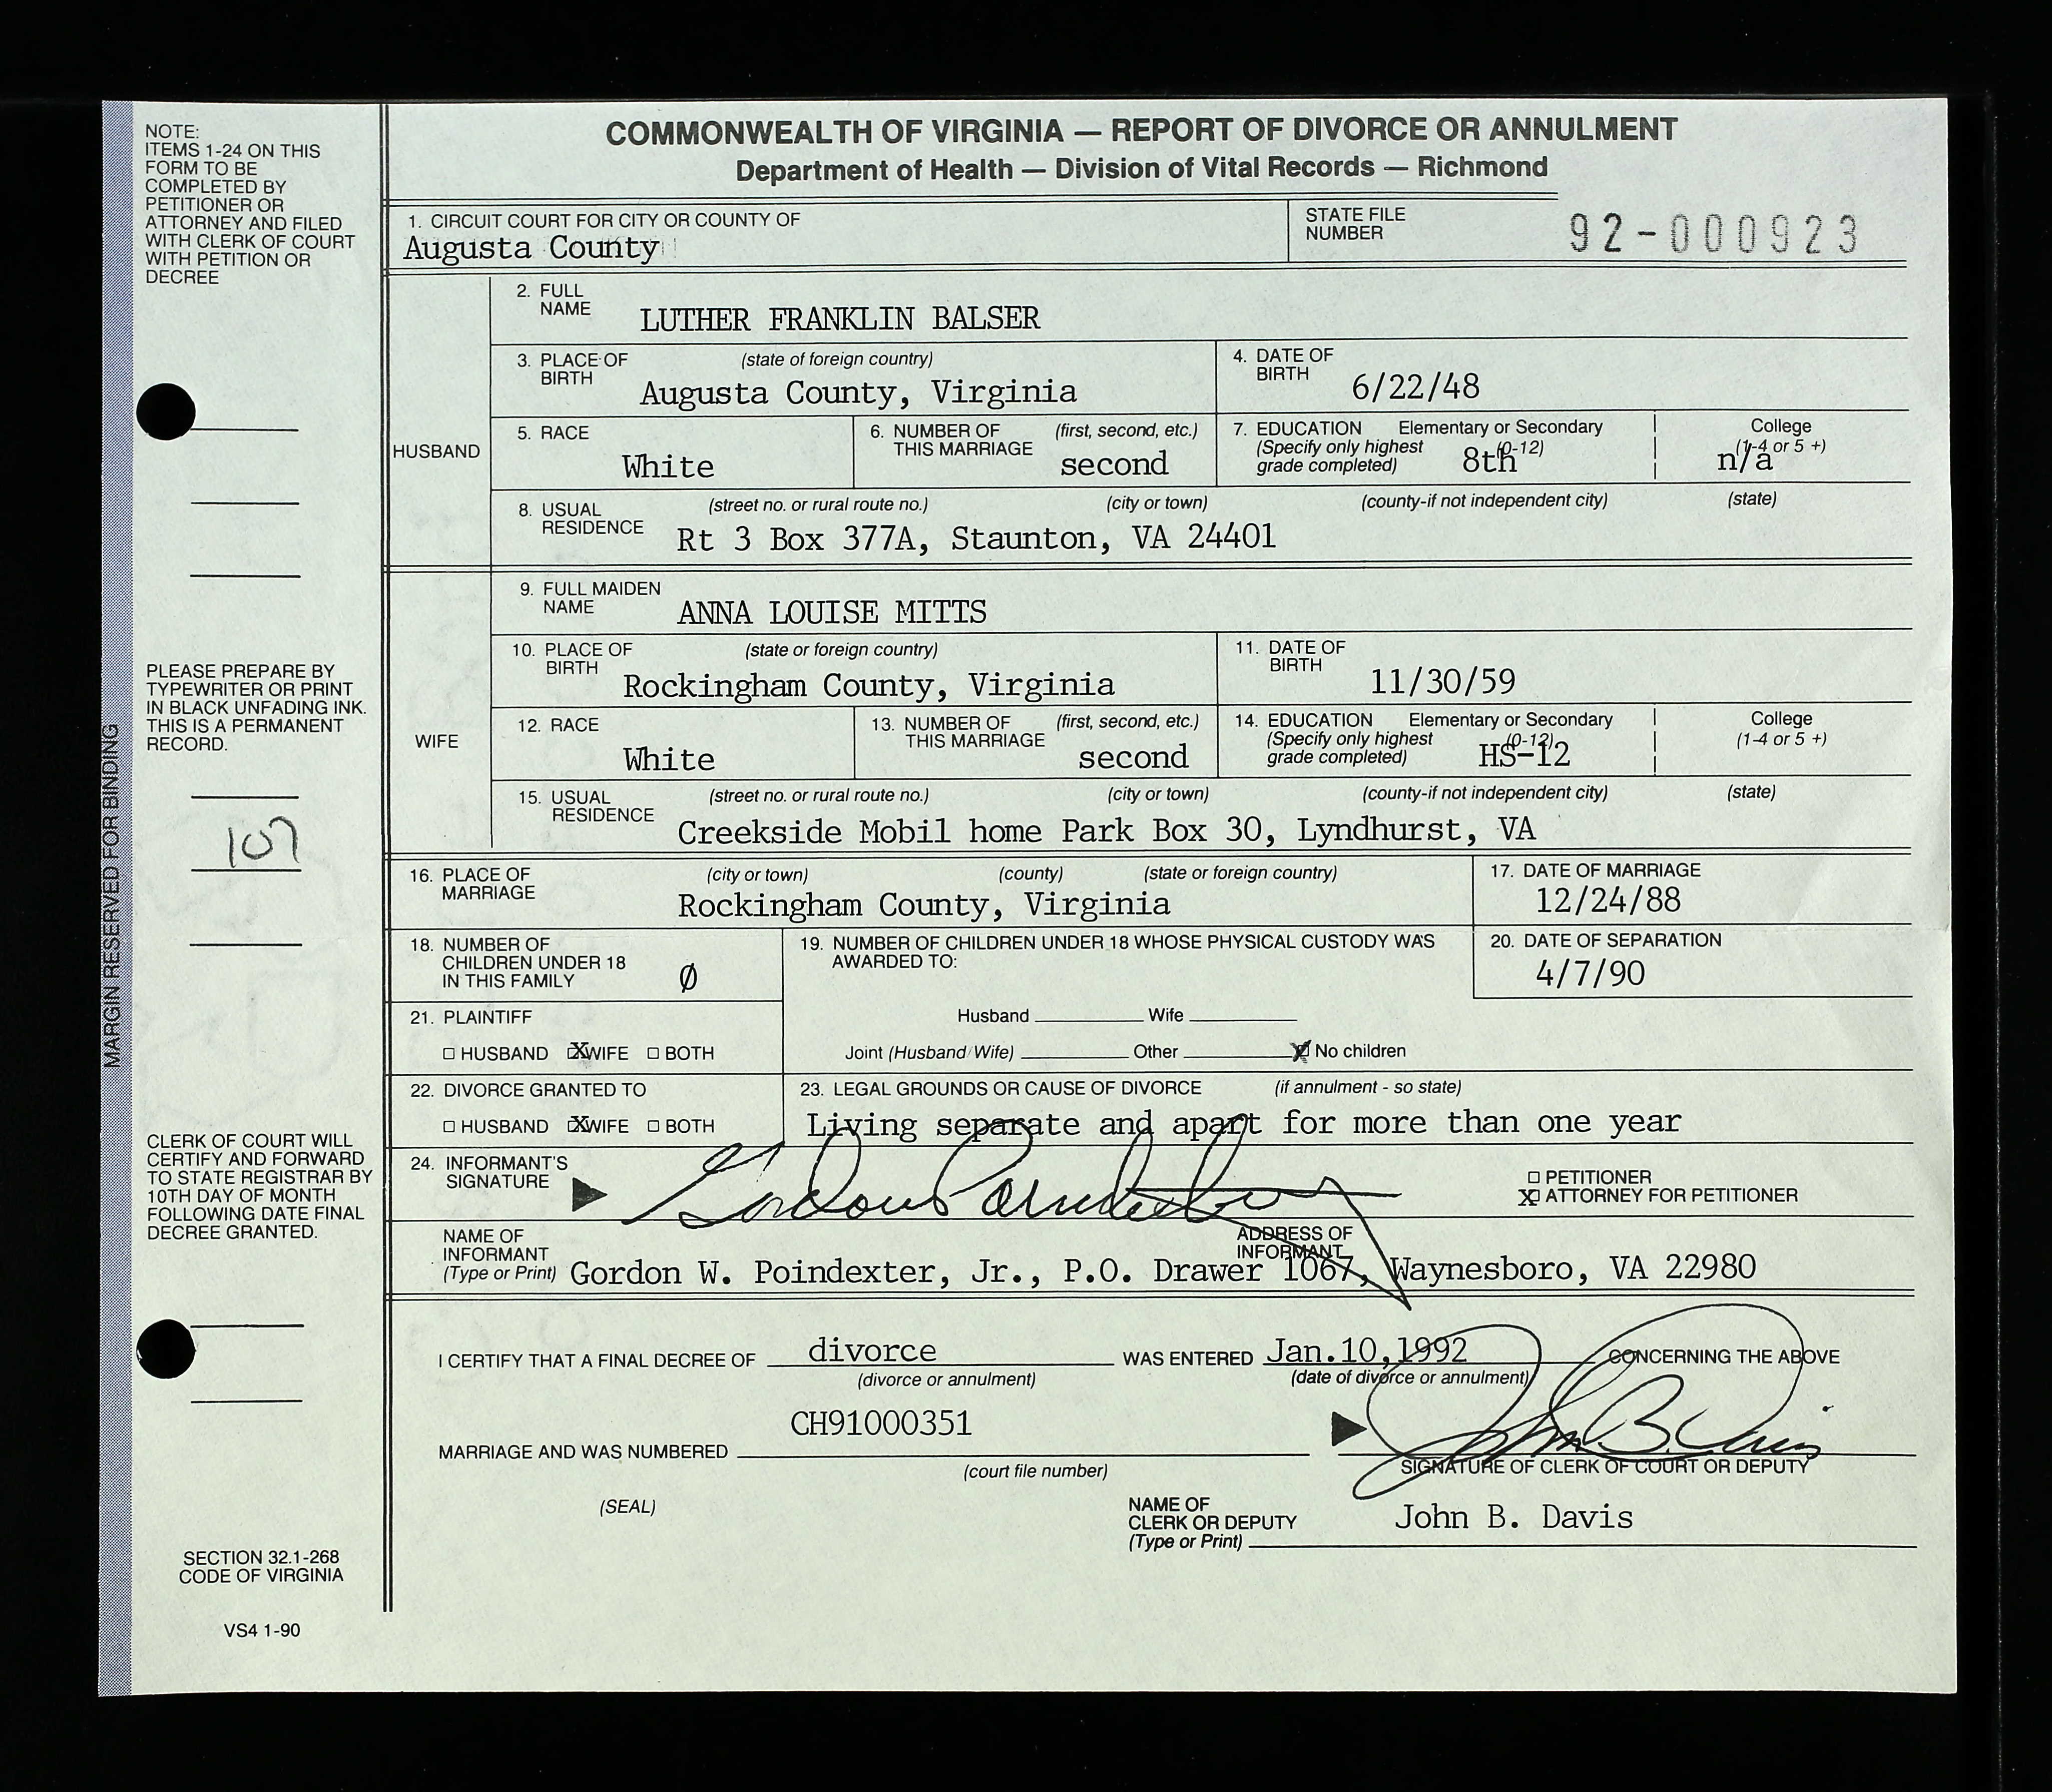 COMMONWEALTH OF VIRGINIA — REPORT OF DIVORCE OR ANNULMENT
Department of Health — Division of Vital Records — Richmond
NOTE:
ITEMS 1-24 ON THIS
FORM TO BE
COMPLETED BY
PETITIONER OR
ATTORNEY AND FILED
WITH CLERK OF COURT
WITH PETITION OR
DECREE
1. CIRCUIT COURT FOR CITY OR COUNTY OF
Augusta County
STATE FILE
NUMBER
92-000923
HUSBAND
2. FULL
NAME
LUTHER FRANKLIN BALSER
3. PLACE OF
BIRTH
(state of foreign country)
Augusta County, Virginia
4. DATE OF
BIRTH
6/22/48
5. RACE
White
6. NUMBER OF
THIS MARRIAGE
(first, second, etc.)
second
7. EDUCATION
(Specify only highest
grade completed)
Elementary or Secondary
(0-12)
8th
College
(1-4 or 5 +)
n/a
8. USUAL
RESIDENCE
(street no. or rural route no.) (city or town) (county-if not independent city) (state)
Rt 3 Box 377A, Staunton, VA 24401
WIFE
9. FULL MAIDEN
NAME
ANNA LOUISE MITTS
10. PLACE OF
BIRTH
(state or foreign country)
Rockingham County, Virginia
11. DATE OF
BIRTH
11/30/59
12. RACE
White
13. NUMBER OF
THIS MARRIAGE
(first, second, etc.)
second
14. EDUCATION
(Specify only highest
grade completed)
Elementary or Secondary
(0-12)
HS-12
College
(1-4 or 5 +)
15. USUAL
RESIDENCE
(street no. or rural route no.) (city or town) (county-if not independent city) (state)
Creekside Mobil home Park Box 30, Lyndhurst, VA
PLEASE PREPARE BY
TYPEWRITER OR PRINT
IN BLACK UNFADING INK.
THIS IS A PERMANENT
RECORD.
MARGIN RESERVED FOR BINDING
107
16. PLACE OF
MARRIAGE
(city or town) (county) (state or foreign country)
Rockingham County, Virginia
17. DATE OF MARRIAGE
12/24/88
18. NUMBER OF
CHILDREN UNDER 18
IN THIS FAMILY
Ø
19. NUMBER OF CHILDREN UNDER 18 WHOSE PHYSICAL CUSTODY WAS
AWARDED TO:
Husband Wife
Joint (Husband/Wife) Other X No children
20. DATE OF SEPARATION
4/7/90
21. PLAINTIFF
☐ HUSBAND X WIFE ☐ BOTH
22. DIVORCE GRANTED TO
☐ HUSBAND X WIFE ☐ BOTH
23. LEGAL GROUNDS OR CAUSE OF DIVORCE (if annulment - so state)
Living separate and apart for more than one year
CLERK OF COURT WILL
CERTIFY AND FORWARD
TO STATE REGISTRAR BY
10TH DAY OF MONTH
FOLLOWING DATE FINAL
DECREE GRANTED.
24. INFORMANT'S
SIGNATURE
Gordon Poindexter
☐ PETITIONER
X ATTORNEY FOR PETITIONER
NAME OF
INFORMANT
(Type or Print)
ADDRESS OF
INFORMANT
Gordon W. Poindexter, Jr., P.O. Drawer 1067, Waynesboro, VA 22980
I CERTIFY THAT A FINAL DECREE OF divorce WAS ENTERED Jan.10,1992 CONCERNING THE ABOVE
(divorce or annulment) (date of divorce or annulment)
MARRIAGE AND WAS NUMBERED CH91000351
(court file number)
John B. Davis
SIGNATURE OF CLERK OF COURT OR DEPUTY
(SEAL)
NAME OF
CLERK OR DEPUTY
(Type or Print)
John B. Davis
SECTION 32.1-268
CODE OF VIRGINIA
VS4 1-90